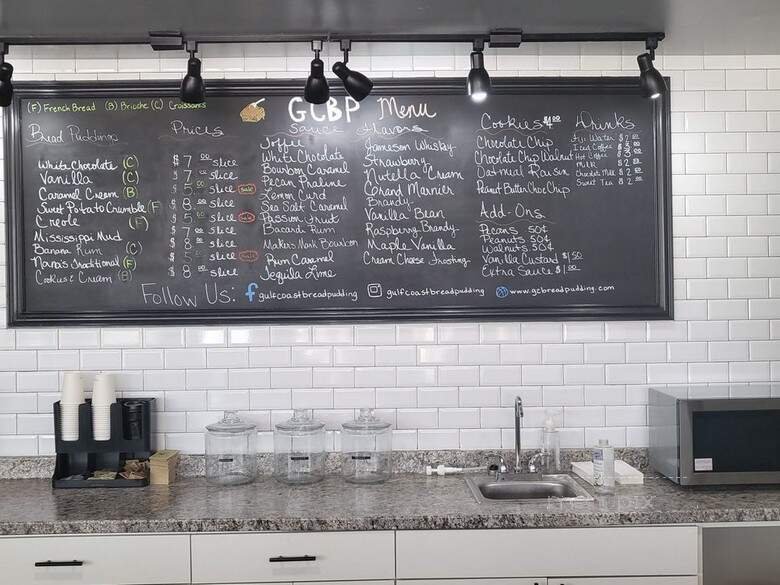 (F) French Bread (B) Brioche (C) Croissants
GCBP Menu
Bread Puddings
White Chocolate (C)
Vanilla (C)
Caramel Cream (B)
Sweet Potato Crumble (F
Creole (F)
Mississippi Mud
Banana Rum (C)
Nana's Traditional (F)
Cookies & Cream (B)
Prices
$ 7 00 slice
$ 7 slice
$ 5 slice Sale
$ 8 slice
$ 5 slice
$ 7 slice
$ 8 slice
$ 5 slice
$ 8 slice
Sauce Flavors
Toffee
White Chocolate
Bourbon Caramel
Pecan Praline
Lemon Curd
Sea Salt Caramel
Passion Fruit
Bacardi Rum
Makers Mark Bourbon
Rum Caramel
Tequila Lime
Jameson Whisky
Strawberry
Nutella Cream
Grand Marnier
Brandy
Vanilla Bean
Raspberry Brandy
Maple Vanilla
Cream Cheese Frosting
Cookies $4 00
Chocolate Chip
Chocolate Chip Walnut
Oatmeal Raisin
Peanut Butter Choc Chip
Add-Ons
Pecans 50¢
Peanuts 50¢
Walnuts 50¢
Vanilla Custard $1 50
Extra Sauce $1 00
Drinks
Fiji Water $
Iced Coffee $
Hot Coffee $
Milk $ 2
Chocolate Milk $ 2
Sweet Tea $ 2
Follow Us: f gulfcoastbreadpudding gulfcoastbreadpudding www.gcbreadpudding.com